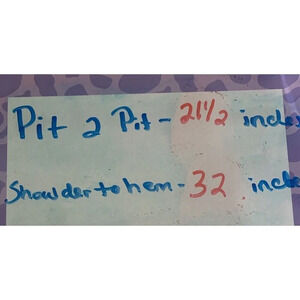 Pit 2 Pit - 21 1/2 inches
Showder to hem - 32 inche